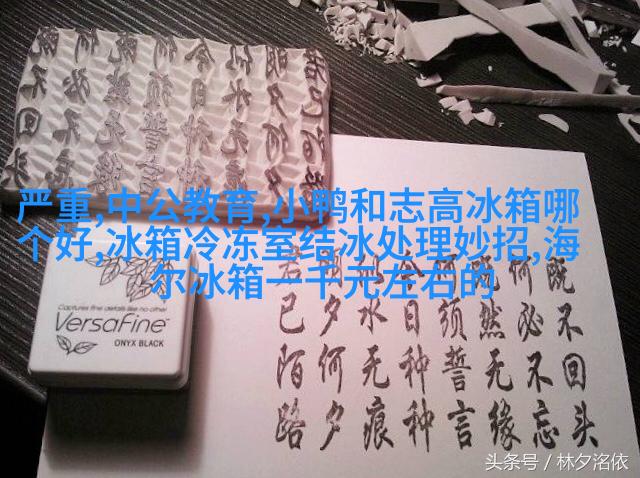 严重,中公教育,小鸭和志高冰箱哪
个好,冰箱冷冻室结冰处理妙招,海
尔冰箱一千元左右的
既不回头
何必不忘
既然无缘
何须誓言
今日种种
似水无痕
明夕何夕
君已陌路
Captures fine details like no other
VersaFine™
ONYX BLACK
头条号／林夕洺依